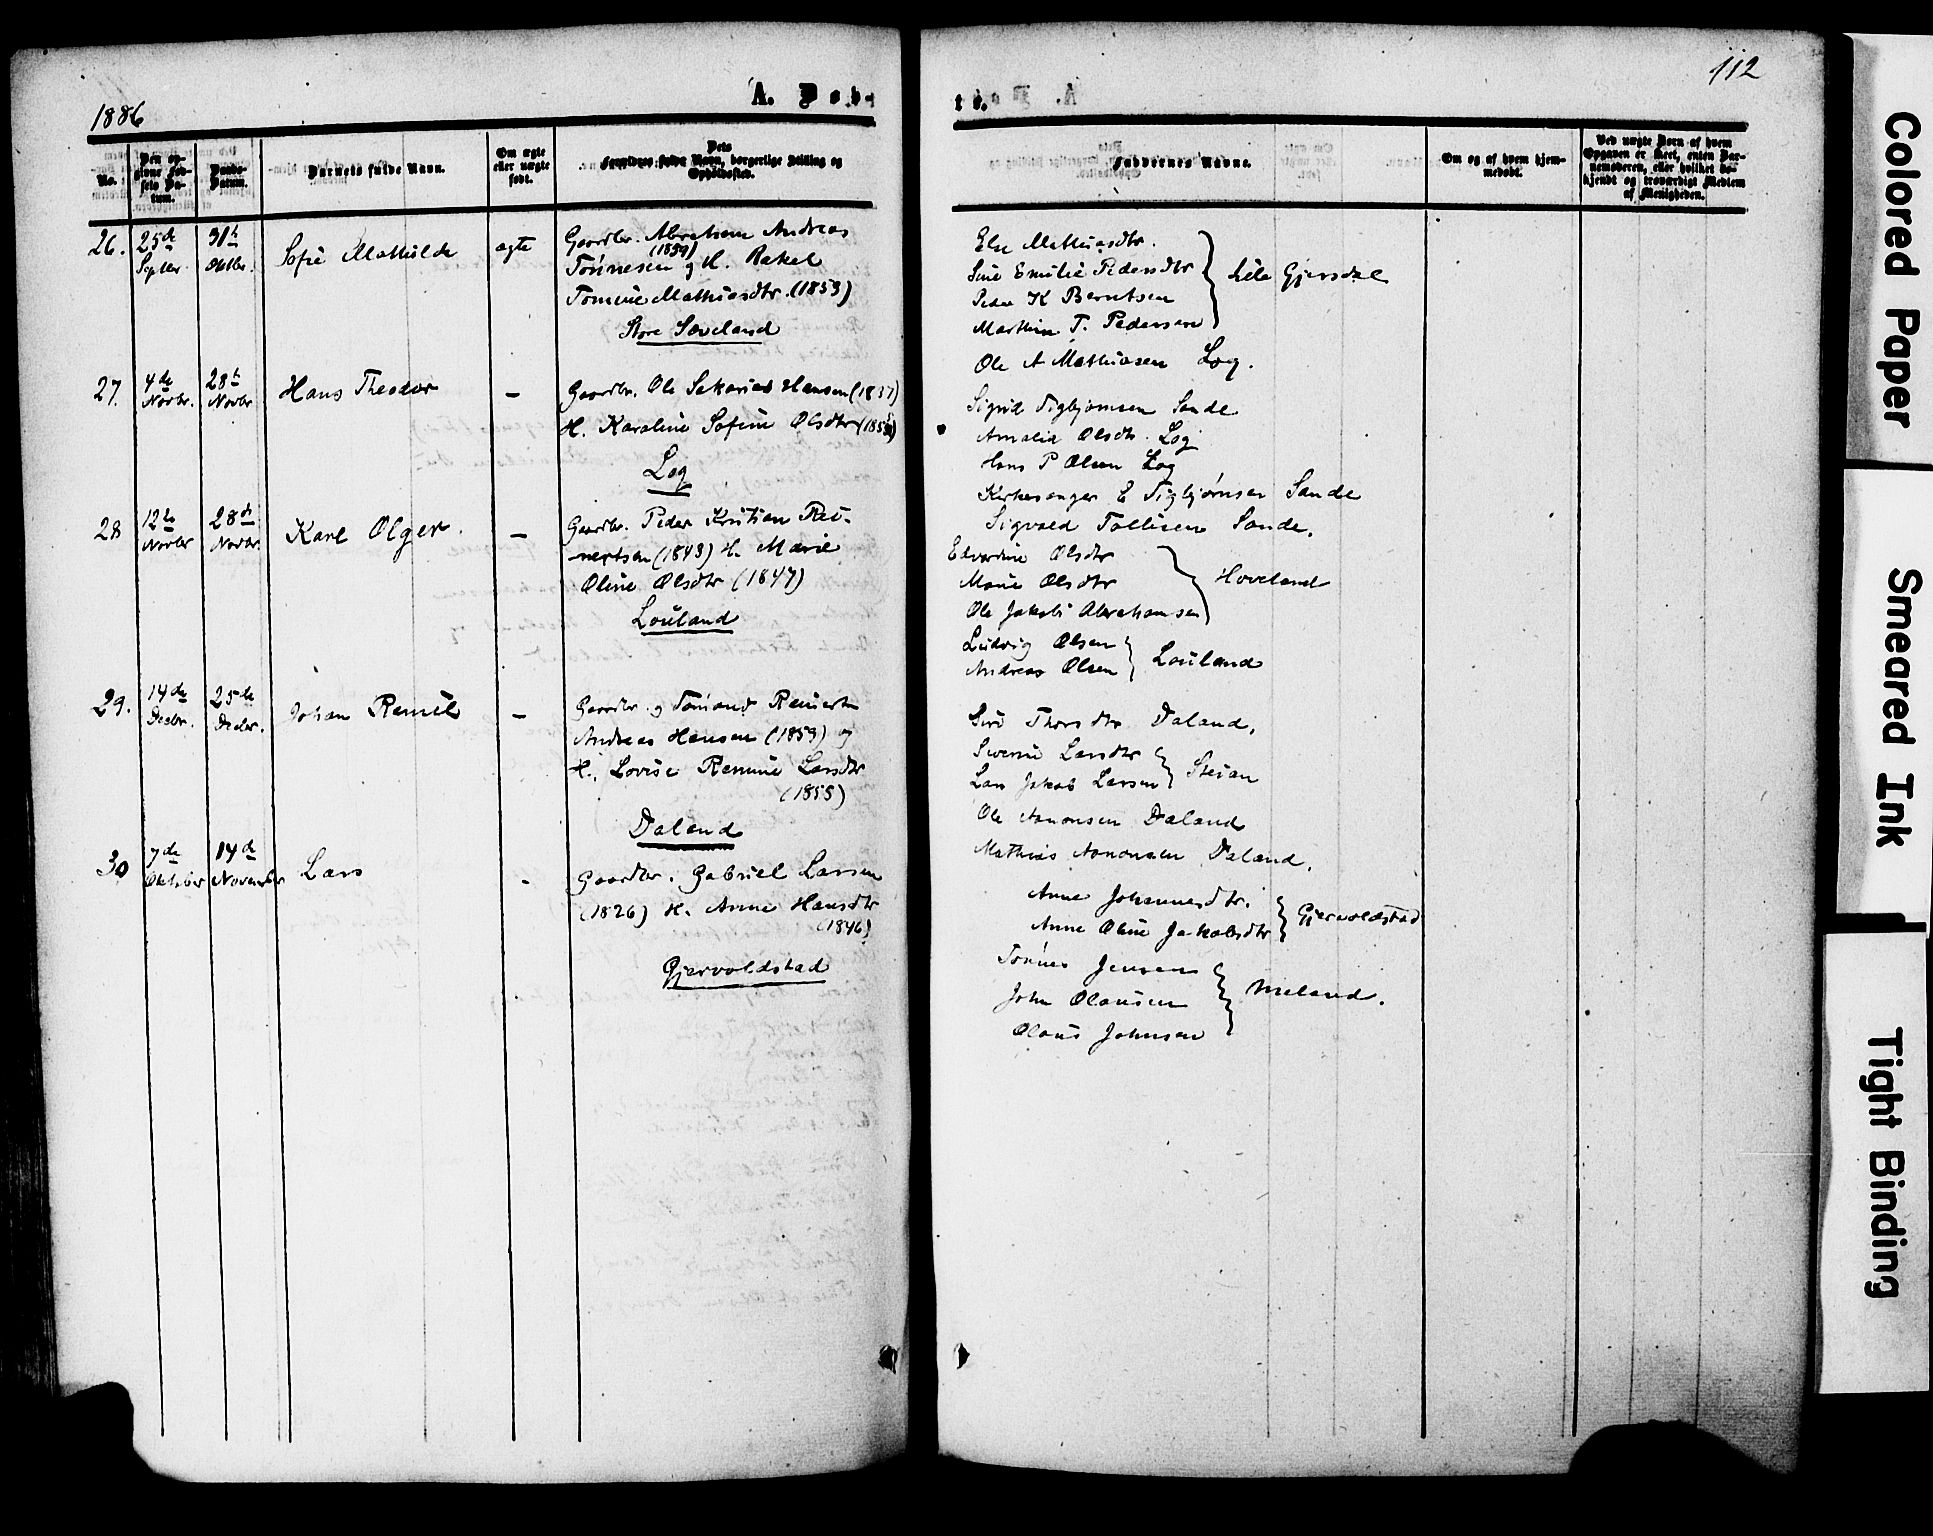 1886
A. Døb-
No.
Den op-
givne Fød-
sels Da-
tum.
Daabs-
Datum.
Barnets fulde Navn.
Om ægte
eller uægte
født.
Dets
Forældres fulde Navn, borgerlige Stilling og
Opholdssted.
26.
25de
Septbr.
31te
Oktbr.
Sofie Mathilde
ægte
Gaardbr. Abraham Andreas
(1859)
Tønnesen og H. Rakel
Tomine Mathiasdtr. (1853)
Store Sæveland
27.
4de
Novbr.
28de
Novbr
Hans Theodor
—
Gaardbr. Ole Sakarias Hansen (1837)
H. Karoline Sofine Olsdtr
Log
28
12te
Novbr
28de
Novbr.
Karl Olger.
—
Gaardbr. Peder Kristian Rei-
nertsen (1843) H. Marie
Oline Olsdtr (1847)
Louland
29.
14de
Decbr.
25de
Decbr.
Johan Remil
—
Gaardbr. og Tømand Reinert
Andreas Hansen (1859) og
H. Lovise Remine Larsdtr
(1855)
Daland
30
7de
Oktober
14de
November
Lars
-
Gaardbr. Gabriel Larsen
(1826) H. Anne Hansdtr
(1846)
Gjervoldstad
112
te.
Faddernes Navne.
Om og af hvem hjem-
medøbt.
Ved uægte Børn af hvem
Opgaven er skeet, enten Bar-
nemoderen, eller hvilket be-
kjendt og troværdigt Medlem
af Menigheden.
Else Mathiasdtr.
Sine Emilie Pedersdtr
Lile Gjersdal
Peder K Berntsen
Marthin T. Pedersen
Ole A Mathiasen Log.
Sigrid Sigbjørnsen Sande
Amalia Olsdtr. Log
Hans P Olsen Log
Kirkesanger E Sigbjørnsen Sande
Sigvald Tollisen Sande.
Edvardine Olsdtr
Marie Olsdtr
Hoveland
Ole Jakob Abrahamsen
Ludvig Olsen
Andreas Olsen
Louland
Siri Thorsdtr Daland.
Severine Larsdtr
Lars Jakob Larsen
Steian
Ole Aanonsen Daland
Mathias Aanonsen Daland.
Anne Johannesdtr.
Anne Oline Jakobsdtr
Gjervoldstad
Tønnes Jensen
John Olausen
Meland.
Olaus Johnsen
Colored Paper
Smeared Ink
Tight Binding